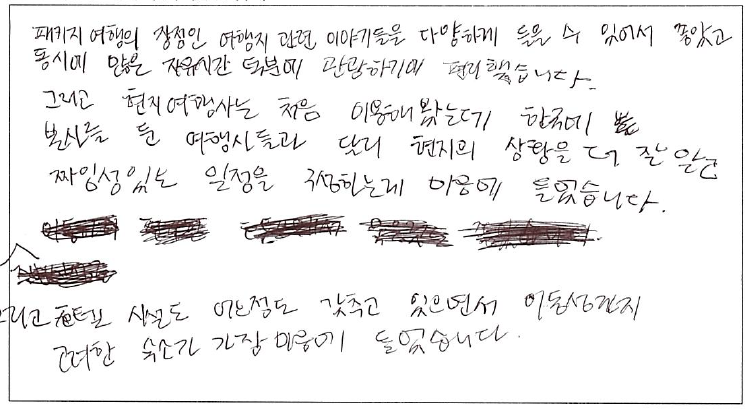 패키지 여행의 장점인 여행지 관련 이야기들을 다양하게 들을 수 있어서 좋았고
동시에 많은 자유시간 덕분에 관람하기에 편리했습니다.
그리고 현지여행사는 처음 이용해 봤는데 한국에
본사를 둔 여행사들과 달리 현지의 상황을 더 잘 알고
짜임성있는 일정을 구성하는게 마음에 들었습니다.
그리고 호텔도 시설도 어느정도 갖추고 있으면서 이동성까지
고려한 숙소가 가장 마음에 들었습니다.